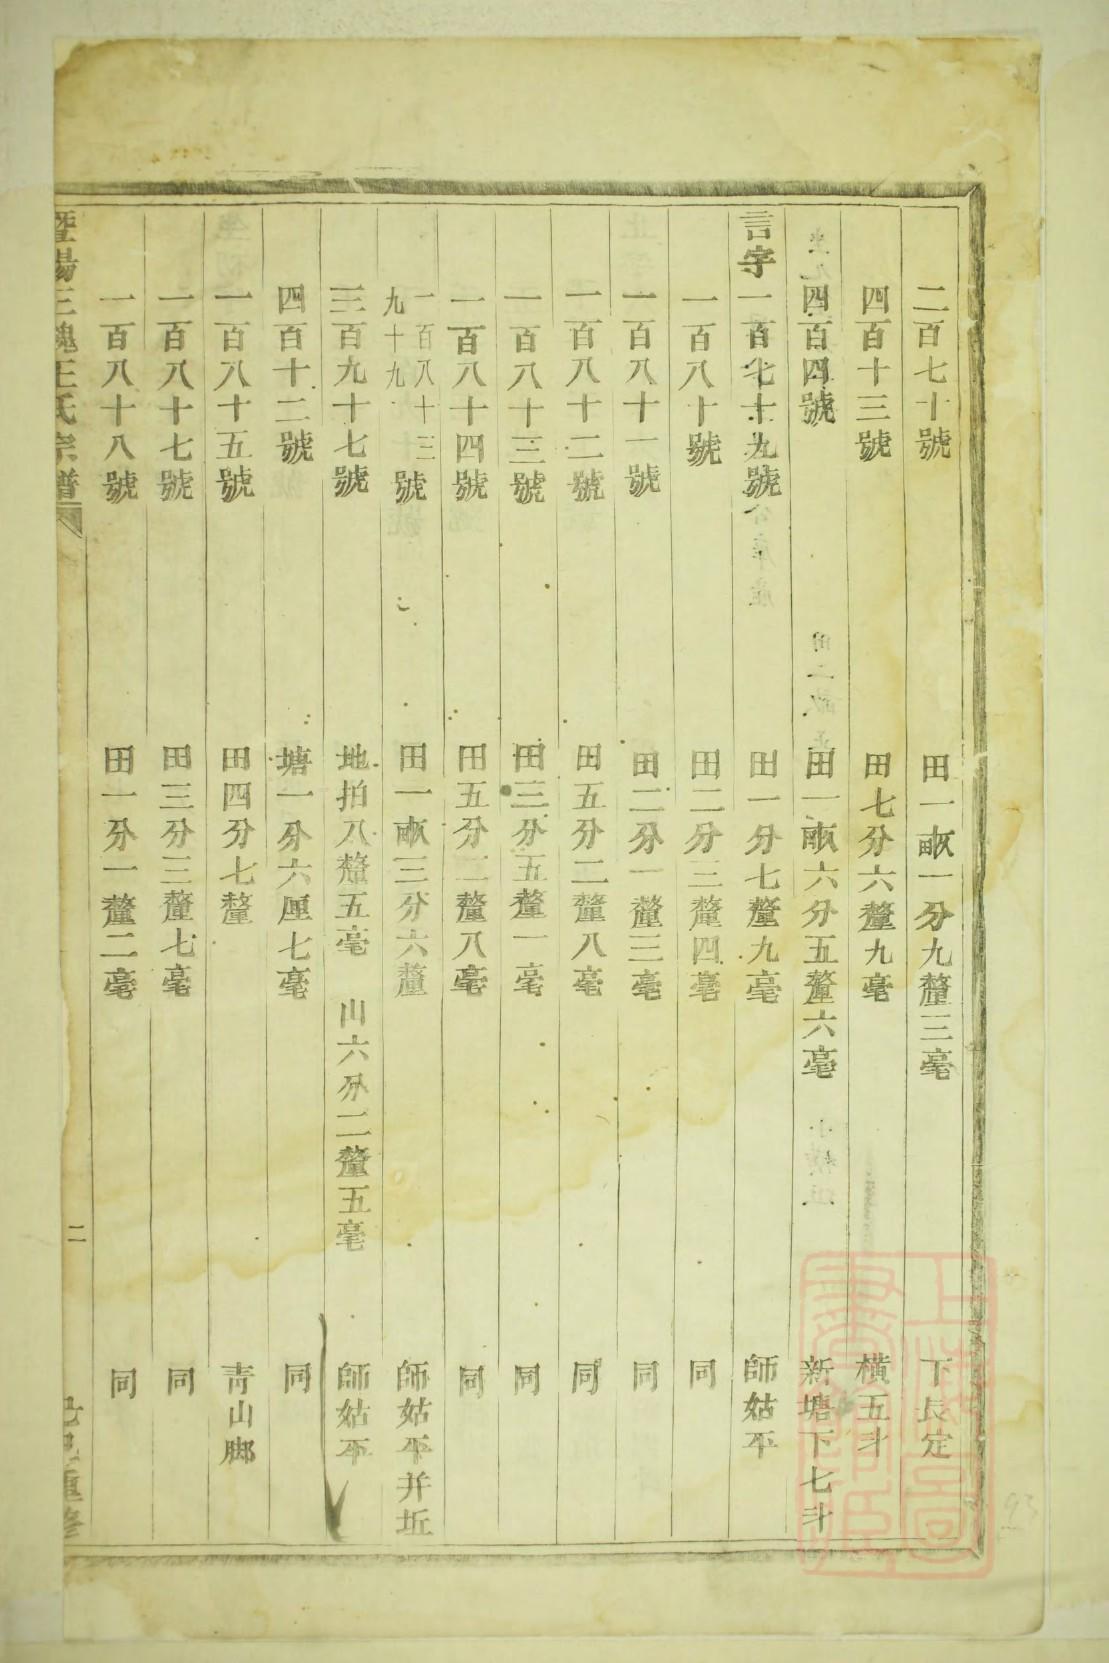 二百七十號 田一畝一分九釐三毫 下長定
四百十三號 田七分六釐九毫 橫五斗
四百四號 田一畝六分五釐六毫 新塘下七斗
言字一百七十九號 田一分七釐九毫 師姑平
一百八十號 田二分三釐四毫 同
一百八十一號 田二分一釐三毫 同
一百八十二號 田五分二釐八毫 同
一百八十三號 田三分五釐一毫 同
一百八十四號 田五分二釐八毫 同
一百八十三九十九號 田一畝三分六釐 師姑平并坵
三百九十七號 地拍八釐五毫 山六分二釐五毫 師姑平
四百十二號 塘一分六厘七毫 同
一百八十五號 田四分七釐 靑山脚
一百八十七號 田三分三釐七毫 同
一百八十八號 田一分一釐二毫 同
暨陽三槐王氏宗譜 二 重修